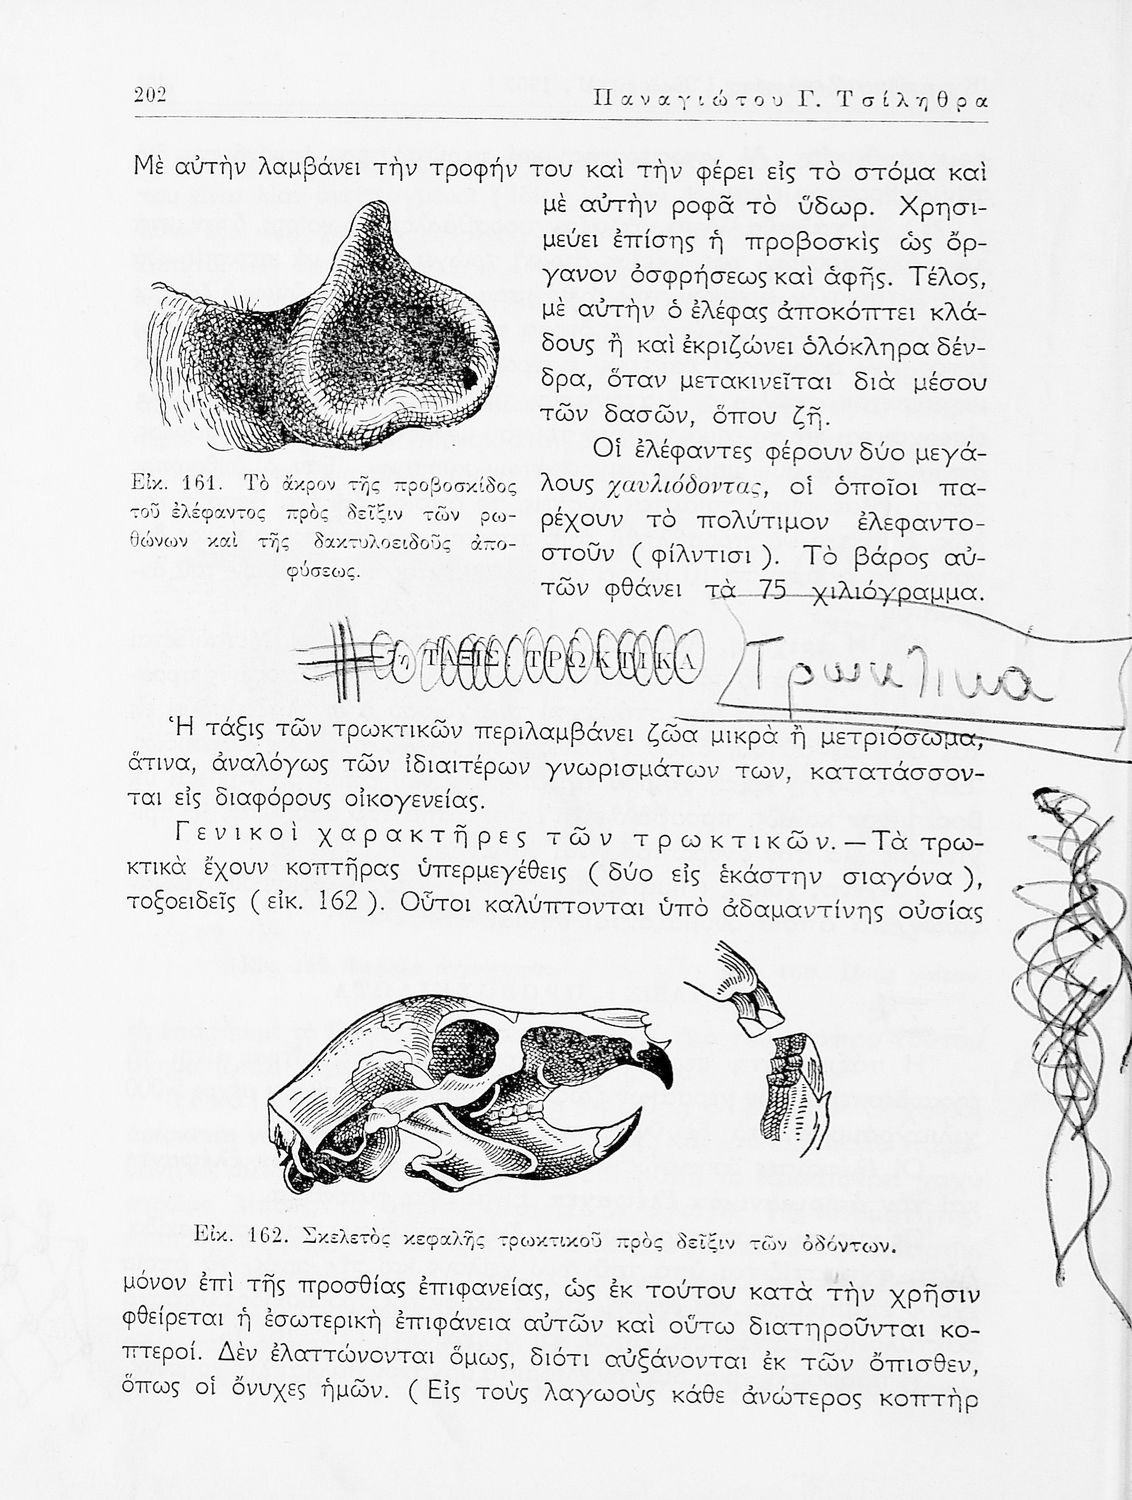 202
Παναγιώτου Γ. Τσίληθρα
Μὲ αὐτὴν λαμβάνει τὴν τροφήν του καὶ τὴν φέρει εἰς τὸ στόμα καὶ
μὲ αὐτὴν ροφᾶ τὸ ὕδωρ. Χρησι-
μεύει ἐπίσης ἡ προβοσκὶς ὡς ὄρ-
γανον ὀσφρήσεως καὶ ἁφῆς. Τέλος,
μὲ αὐτὴν ὁ ἐλέφας ἀποκόπτει κλά-
δους ἢ καὶ ἐκριζώνει ὁλόκληρα δέν-
δρα, ὅταν μετακινεῖται διὰ μέσου
τῶν δασῶν, ὅπου ζῆ.
Οἱ ἐλέφαντες φέρουν δύο μεγά-
λους χαυλιόδοντας, οἱ ὁποῖοι πα-
ρέχουν τὸ πολύτιμον ἐλεφαντο-
στοῦν ( φίλντισι ). Τὸ βάρος αὐ-
τῶν φθάνει τὰ 75 χιλιόγραμμα.
Εἰκ. 161. Τὸ ἄκρον τῆς προβοσκίδος
τοῦ ἐλέφαντος πρὸς δεῖξιν τῶν ρω-
θώνων καὶ τῆς δακτυλοειδοῦς ἀπο-
φύσεως.
η ΤΑΞΙΣ : ΤΡΩΚΤΙΚΑ
Τρωκτικα
Ἡ τάξις τῶν τρωκτικῶν περιλαμβάνει ζῶα μικρὰ ἢ μετριόσωμα,
ἅτινα, ἀναλόγως τῶν ἰδιαιτέρων γνωρισμάτων των, κατατάσσον-
ται εἰς διαφόρους οἰκογενείας.
Γενικοὶ χαρακτῆρες τῶν τρωκτικῶν. — Τὰ τρω-
κτικὰ ἔχουν κοπτῆρας ὑπερμεγέθεις ( δύο εἰς ἑκάστην σιαγόνα ),
τοξοειδεῖς ( εἰκ. 162 ). Οὗτοι καλύπτονται ὑπὸ ἀδαμαντίνης οὐσίας
Εἰκ. 162. Σκελετὸς κεφαλῆς τρωκτικοῦ πρὸς δεῖξιν τῶν ὀδόντων.
μόνον ἐπὶ τῆς προσθίας ἐπιφανείας, ὡς ἐκ τούτου κατὰ τὴν χρῆσιν
φθείρεται ἡ ἐσωτερικὴ ἐπιφάνεια αὐτῶν καὶ οὕτω διατηροῦνται κο-
πτεροί. Δὲν ἐλαττώνονται ὅμως, διότι αὐξάνονται ἐκ τῶν ὄπισθεν,
ὅπως οἱ ὄνυχες ἡμῶν. ( Εἰς τοὺς λαγωοὺς κάθε ἀνώτερος κοπτὴρ